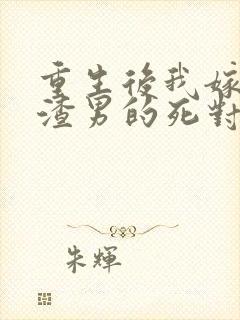 重生後我嫁
渣男的死對
朱輝